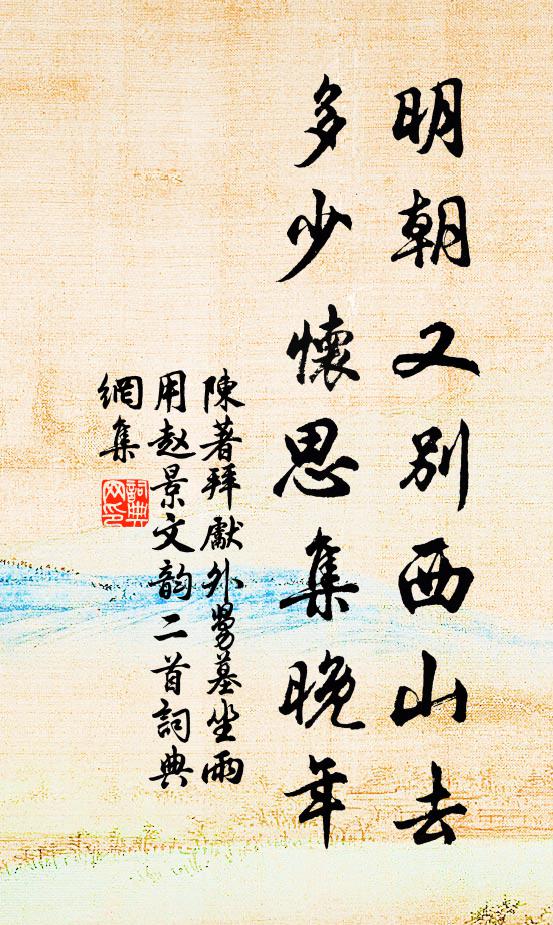 明朝又別西山去
多少懷思集晚年
陳著拜獻外舅墓坐雨
用赵景文韵二首詞典
網集
詞典網印